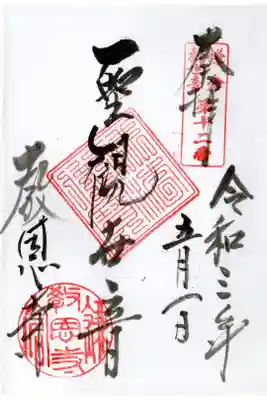 奉拝
第十二番
令和三年
五月一日
聖観世音
教恩寺